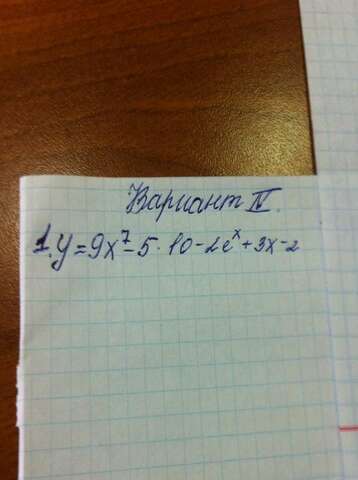 Вариант IV.
1. y=9x⁷-5·10-2eˣ+3x-2